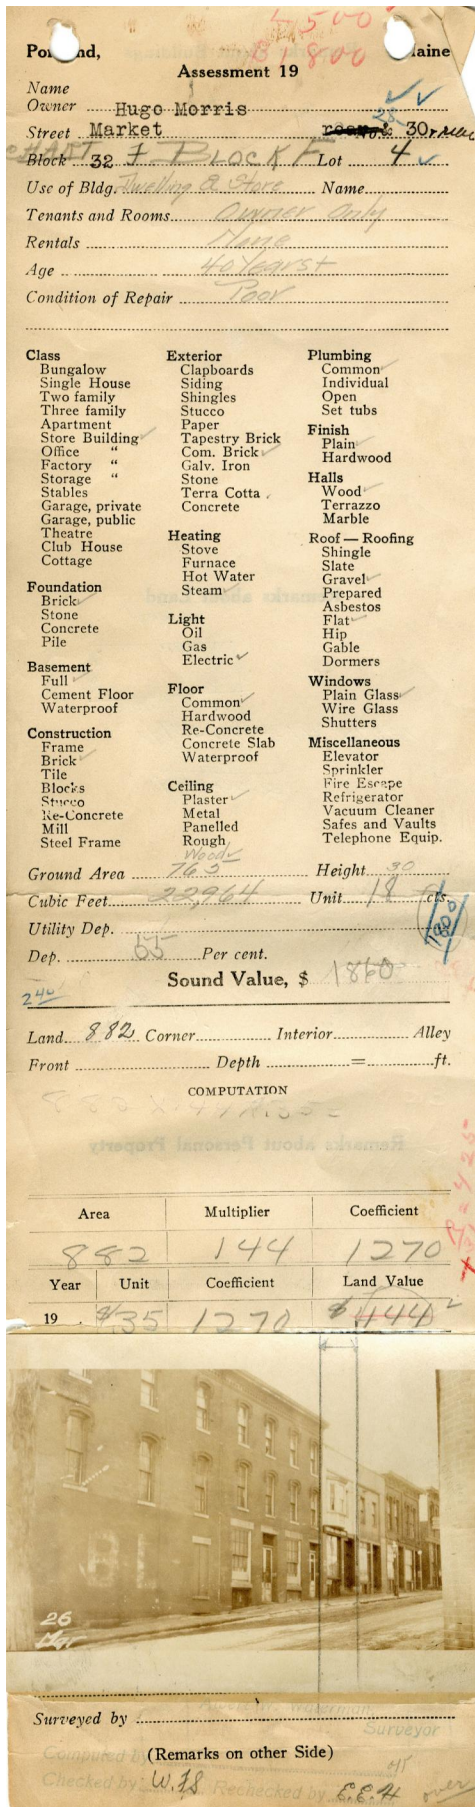 4500
B1800
Portland, Maine
Assessment 19
Name
Owner Hugo Morris
Street Market rear No. 28- 30 & rear
CHART 32 Block F Lot 4
Use of Bldg. Dwelling & Store Name
Tenants and Rooms Owner Only
Rentals None
Age 40 Years +
Condition of Repair Poor
Class
Bungalow
Single House
Two family
Three family
Apartment
Store Building ✓
Office “
Factory “
Storage “
Stables
Garage, private
Garage, public
Theatre
Club House
Cottage
Foundation
Brick ✓
Stone
Concrete
Pile
Basement
Full ✓
Cement Floor
Waterproof
Construction
Frame
Brick ✓
Tile
Blocks
Stucco
Re-Concrete
Mill
Steel Frame
Exterior
Clapboards
Siding
Shingles
Stucco
Paper
Tapestry Brick
Com. Brick ✓
Galv. Iron
Stone
Terra Cotta
Concrete
Heating
Stove
Furnace
Hot Water
Steam ✓
Light
Oil
Gas
Electric ✓
Floor
Common ✓
Hardwood
Re-Concrete
Concrete Slab
Waterproof
Ceiling
Plaster ✓
Metal
Panelled
Rough
Wood ✓
Plumbing
Common ✓
Individual
Open
Set tubs
Finish
Plain ✓
Hardwood
Halls
Wood ✓
Terrazzo
Marble
Roof — Roofing
Shingle
Slate
Gravel ✓
Prepared
Asbestos
Flat ✓
Hip
Gable
Dormers
Windows
Plain Glass ✓
Wire Glass
Shutters
Miscellaneous
Elevator
Sprinkler
Fire Escape
Refrigerator
Vacuum Cleaner
Safes and Vaults
Telephone Equip.
Ground Area 765 Height 30
Cubic Feet 22,964 Unit 18 cts.
Utility Dep.
Dep. 55 Per cent.
Sound Value, $ 1860
240
Land 882 Corner Interior Alley
Front Depth = ft.
COMPUTATION
Area Multiplier Coefficient
882 144 1270
Year Unit Coefficient Land Value
19 . $/35 1270 $444
26
Mar
Surveyed by
Surveyor
(Remarks on other Side)
Computed by
Checked by W.FS Rechecked by E.E.H over